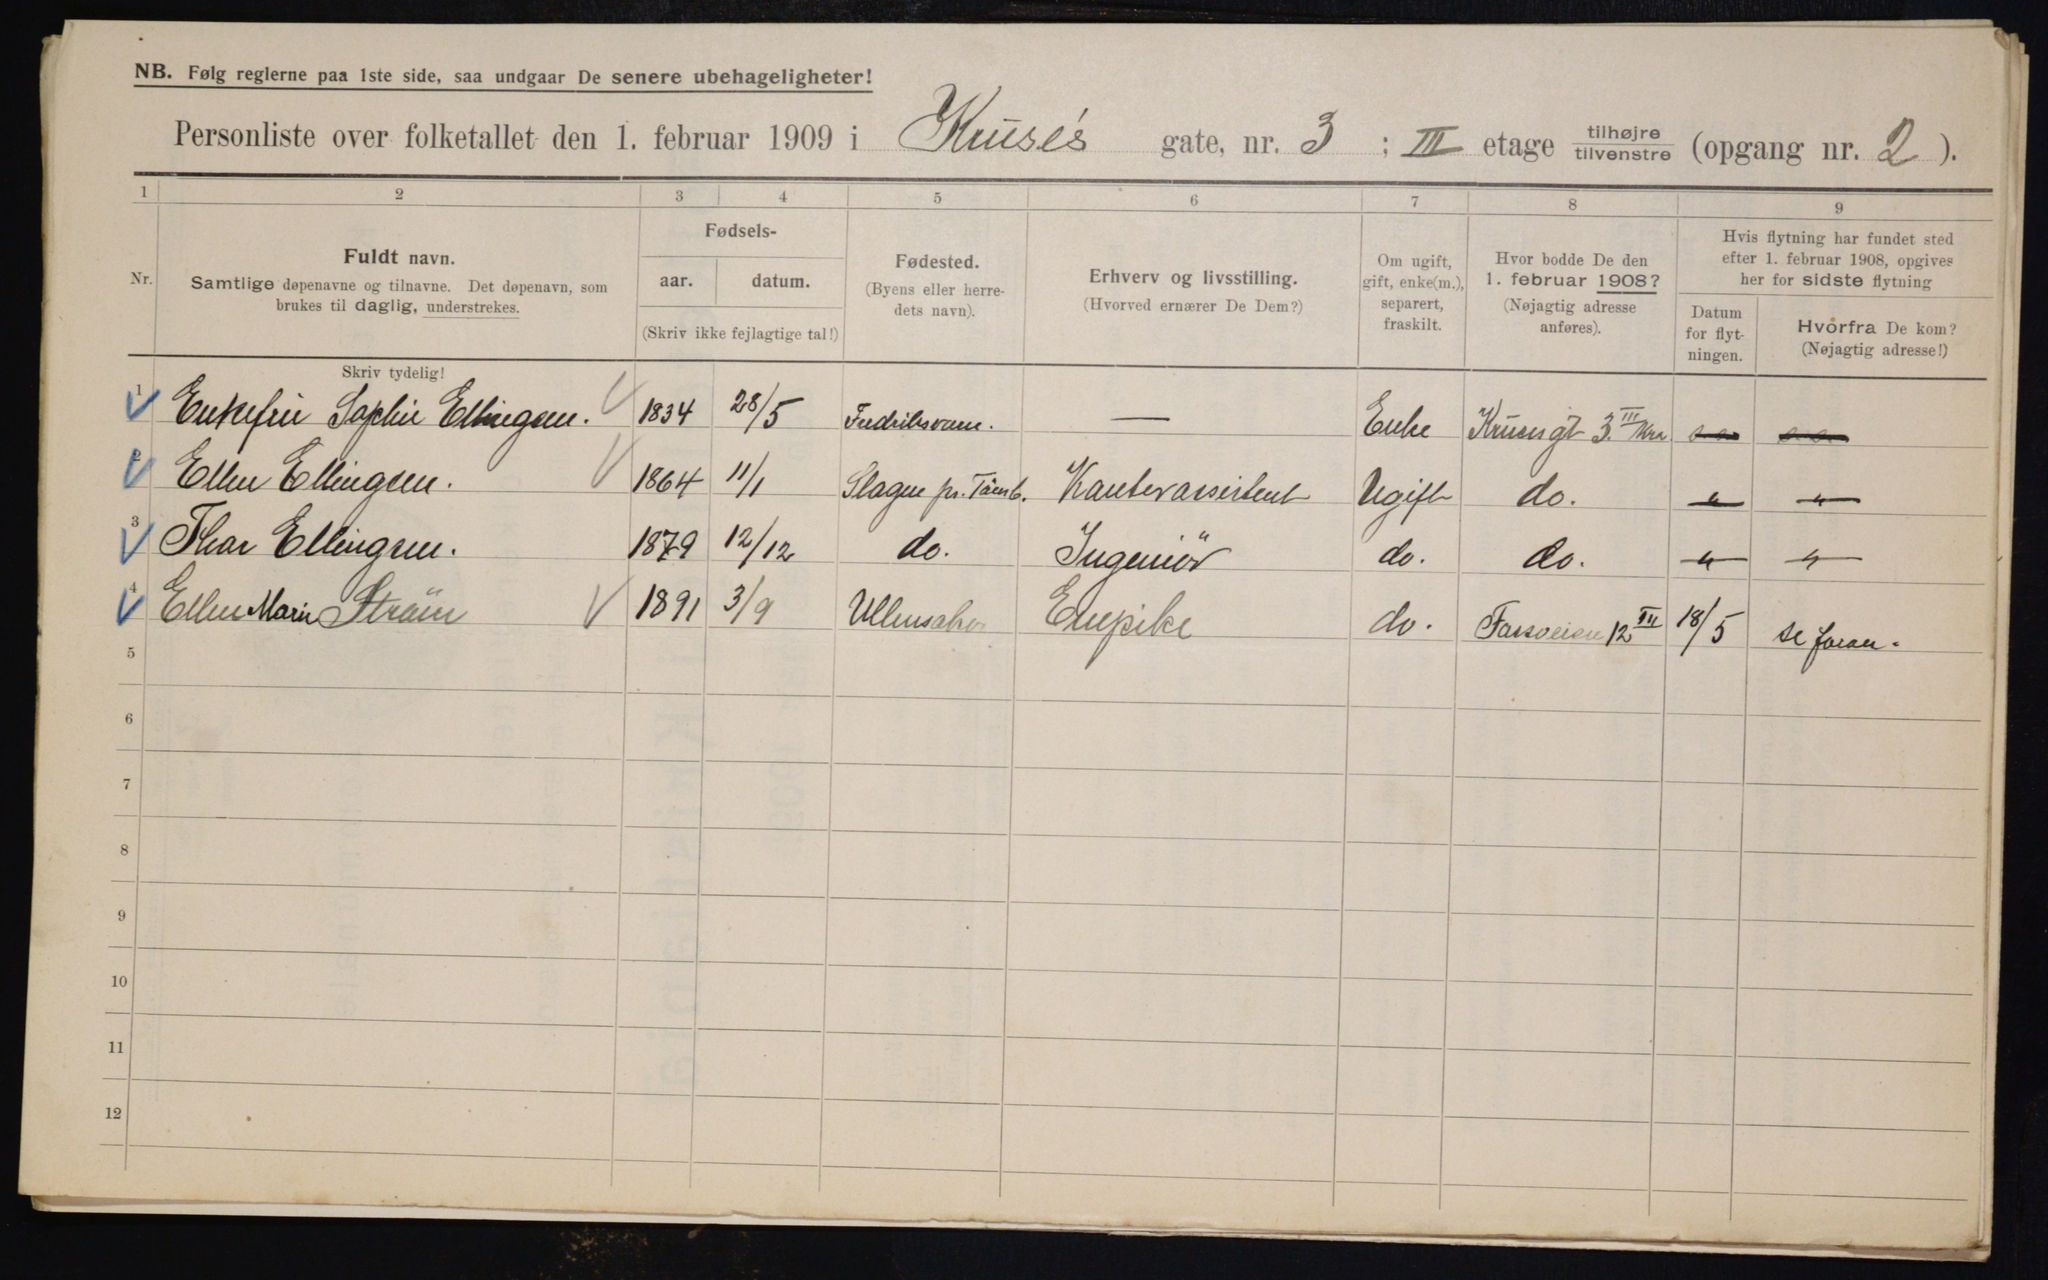 NB. Følg reglerne paa 1ste side, saa undgaar De senere ubehageligheter!
Personliste over folketallet den 1. februar 1909 i Kruse's gate, nr. 3 ; III etage tilhøjre tilvenstre (opgang nr. 2 ).
1 2 3 4 5 6 7 8 9
Nr.
Fuldt navn.
Samtlige døpenavne og tilnavne. Det døpenavn, som
brukes til daglig, understrekes.
Skriv tydelig!
Fødsels-
aar. datum.
(Skriv ikke fejlagtige tal!)
Fødested.
(Byens eller herre-
dets navn).
Erhverv og livsstilling.
(Hvorved ernærer De Dem?)
Om ugift,
gift, enke(m.),
separert,
fraskilt.
Hvor bodde De den
1. februar 1908?
(Nøjagtig adresse
anføres).
Hvis flytning har fundet sted
efter 1. februar 1908, opgives
her for sidste flytning
Datum
for flyt-
ningen.
Hvorfra De kom?
(Nøjagtig adresse!)
1 Enkefru Sophie Ellingsen. 1834 28/5 Fredriksværn. — Enke Krusesgt 3. III Kra
2 Ellen Ellingsen. 1864 11/1 Slagen pr. Tønsb. Kontorassistent Ugift do. " "
3 Thor Ellingsen. 1879 12/12 do. Ingeniør do. do. " "
4 Ellen Marie Strøm 1891 3/9 Ullensaker Enepike do. 12 III 18/5 se foran.
5
6
7
8
9
10
11
12